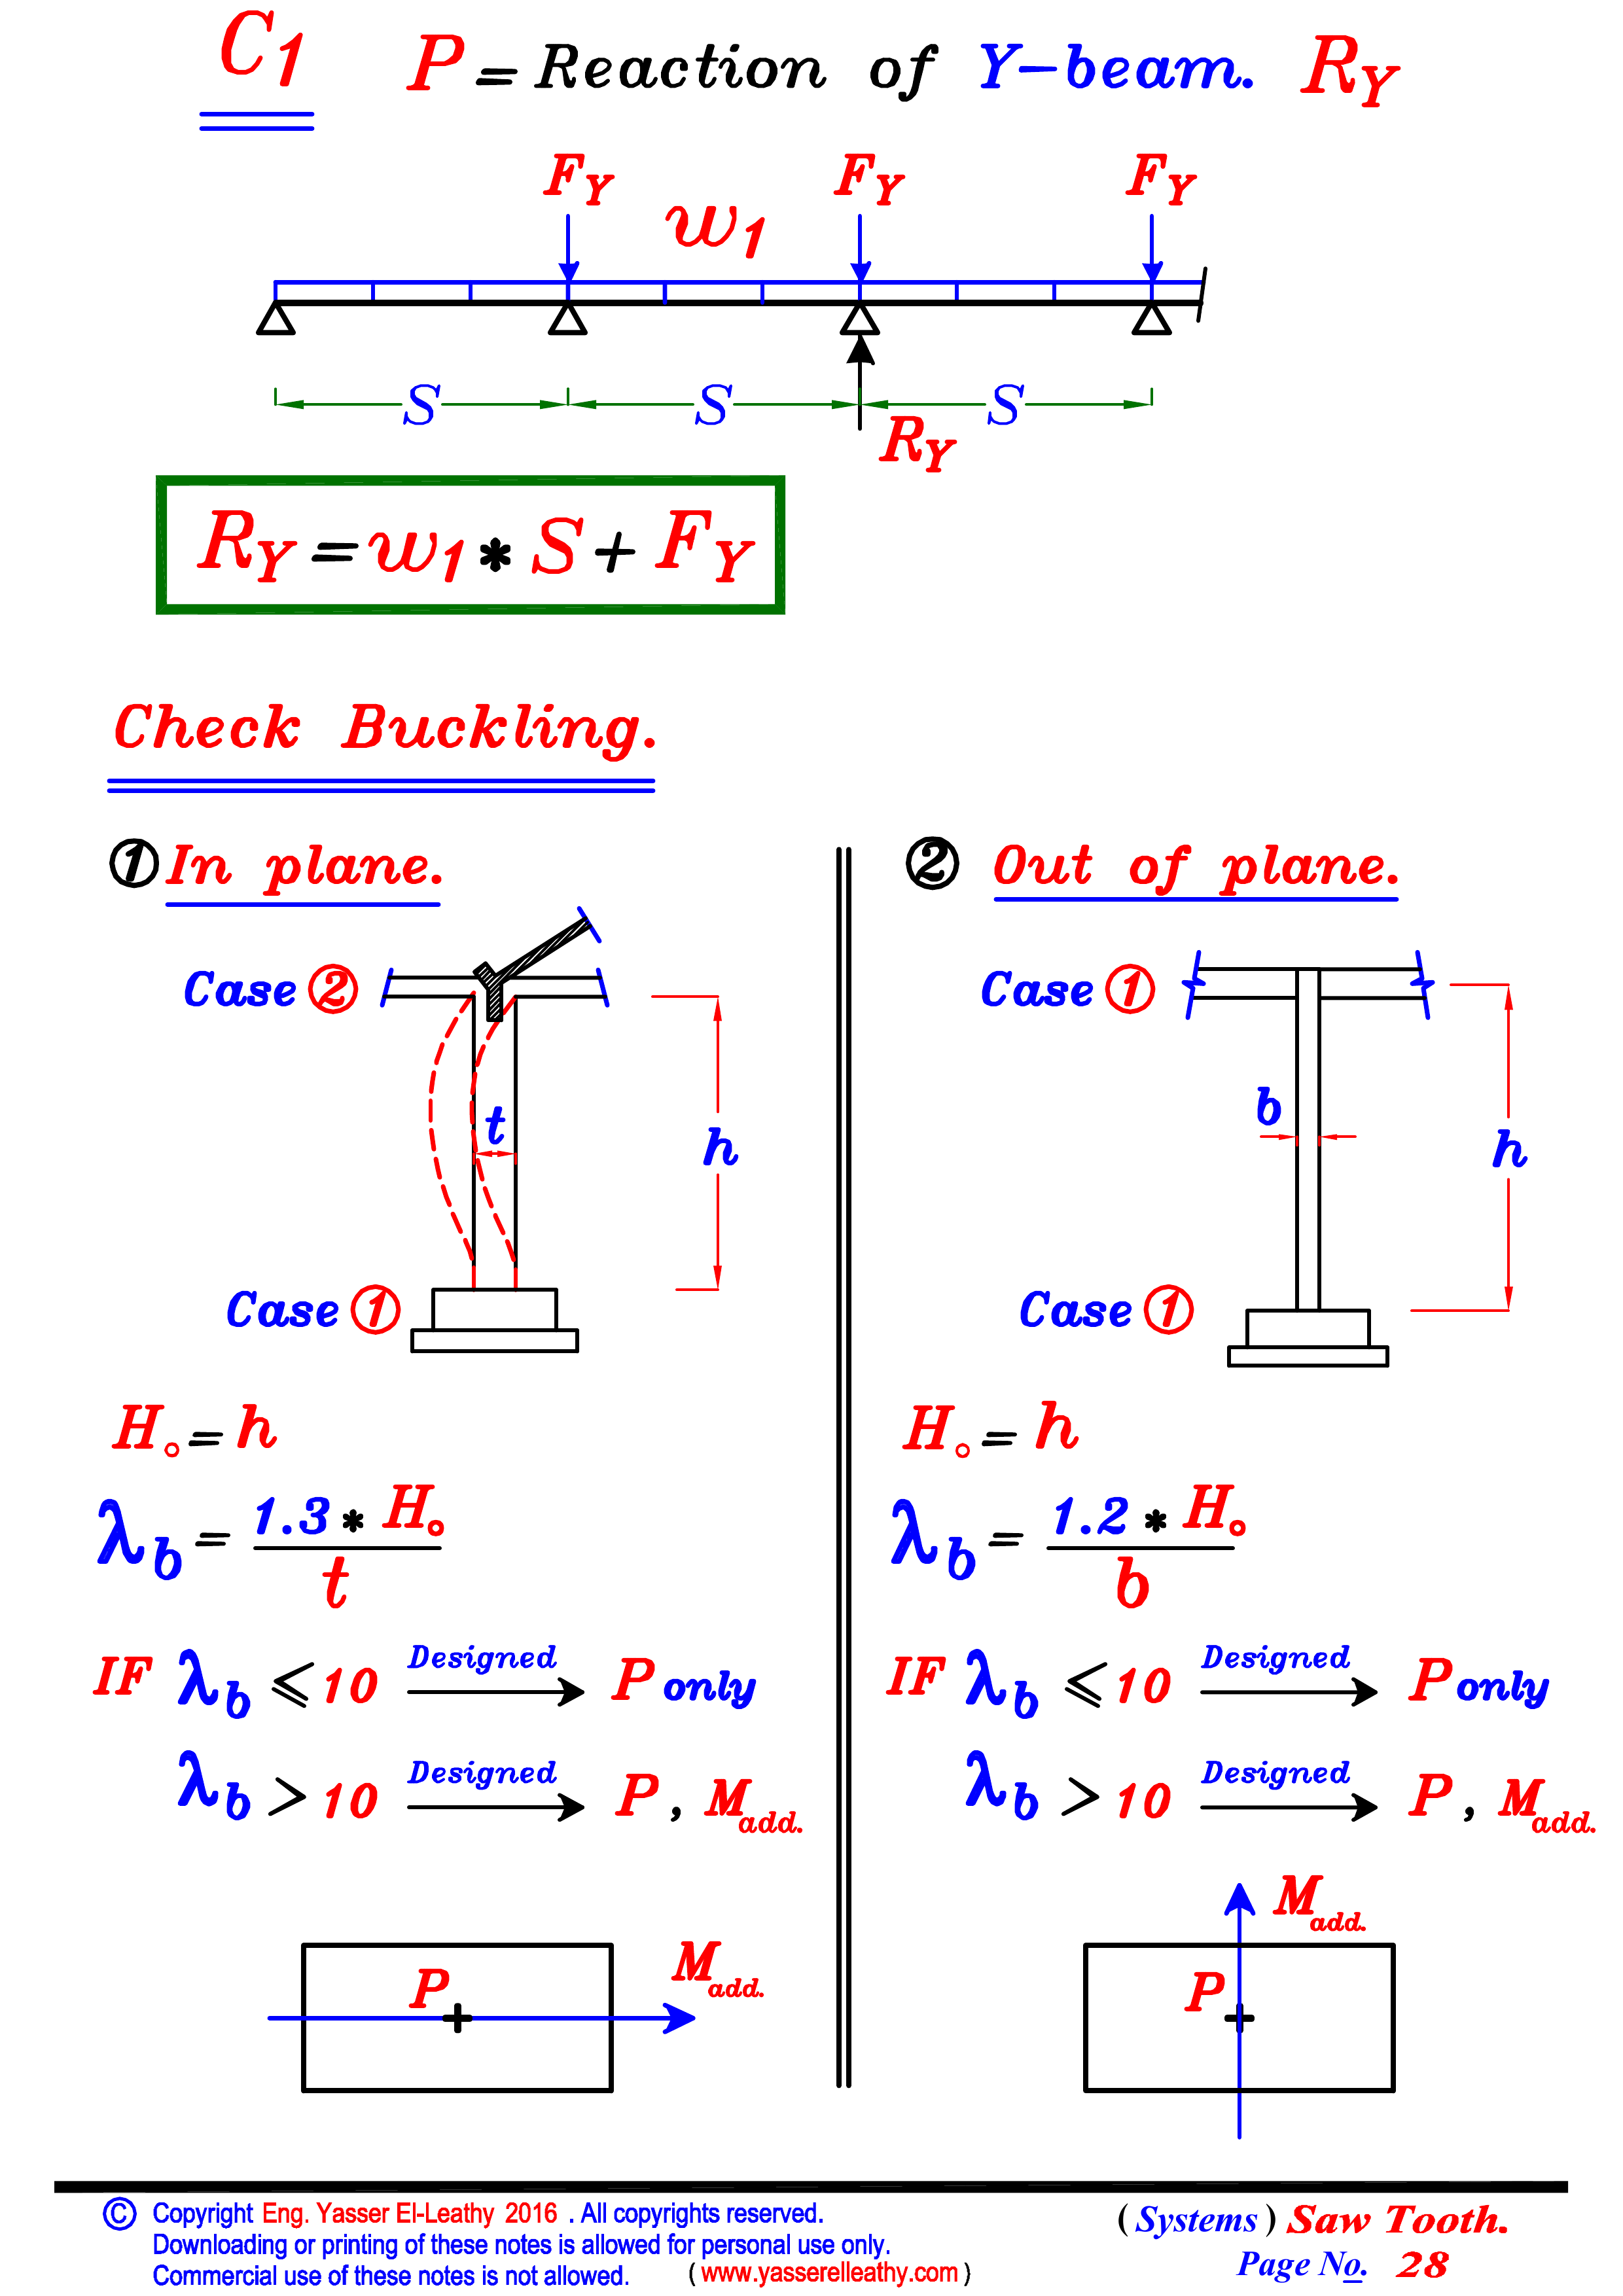 C1 P = Reaction of Y-beam. RY
FY FY FY
w1
S S S
RY
RY = w1 * S + FY
Check Buckling.
① In plane.
Case ②
t
h
Case ①
H₀ = h
λb = 1.3 * H₀ / t
IF λb ≤ 10 Designed → P only
λb > 10 Designed → P , Madd.
P Madd.
② Out of plane.
Case ①
b
h
Case ①
H₀ = h
λb = 1.2 * H₀ / b
IF λb ≤ 10 Designed → P only
λb > 10 Designed → P , Madd.
Madd.
P
© Copyright Eng. Yasser El-Leathy 2016 . All copyrights reserved.
Downloading or printing of these notes is allowed for personal use only.
Commercial use of these notes is not allowed. ( www.yasserelleathy.com )
( Systems ) Saw Tooth.
Page No. 28